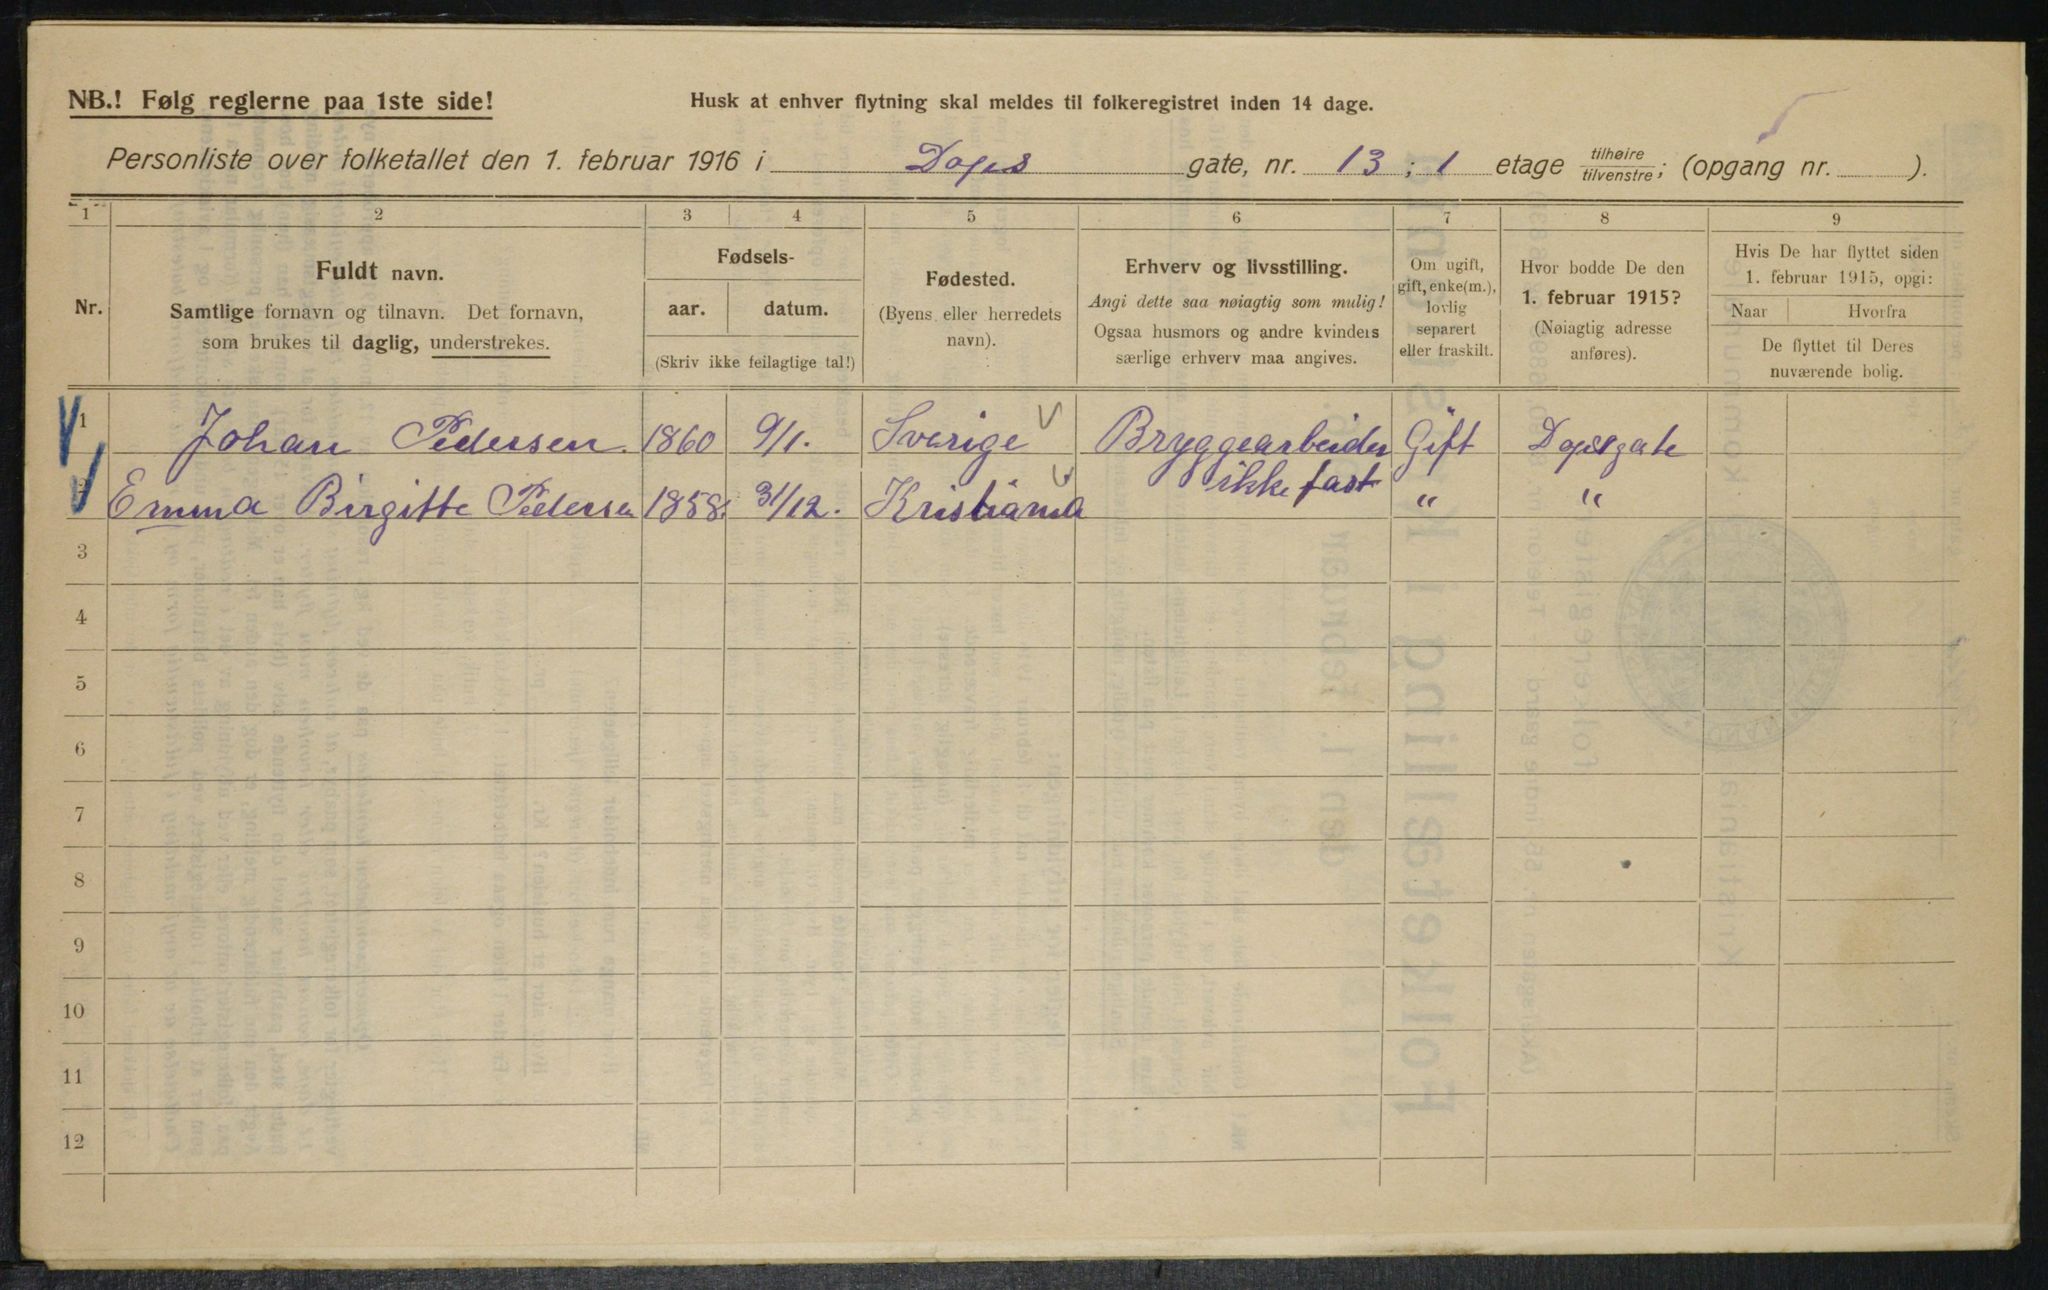 NB.! Følg reglerne paa 1ste side!
Husk at enhver flytning skal meldes til folkeregistret inden 14 dage.
Personliste over folketallet den 1. februar 1916 i Dops gate, nr. 13 ; 1 etage tilhøire/tilvenstre; (opgang nr. ).
1 2 3 4 5 6 7 8 9
Nr.
Fuldt navn.
Samtlige fornavn og tilnavn. Det fornavn,
som brukes til daglig, understrekes.
Fødsels-
aar. datum.
(Skriv ikke feilagtige tal!)
Fødested.
(Byens eller herredets
navn).
Erhverv og livsstilling.
Angi dette saa nøiagtig som mulig!
Ogsaa husmors og andre kvinders
særlige erhverv maa angives.
Om ugift,
gift, enke(m.),
lovlig
separert
eller fraskilt.
Hvor bodde De den
1. februar 1915?
(Nøiagtig adresse
anføres).
Hvis De har flyttet siden
1. februar 1915, opgi:
Naar Hvorfra
De flyttet til Deres
nuværende bolig.
1 Johan Pedersen. 1860 9/1. Sverige Bryggearbeider Gift Dopsgate
ikke fast
2 Emma Birgitte Pedersen 1858. 31/12. Kristiania " "
3
4
5
6
7
8
9
10
11
12